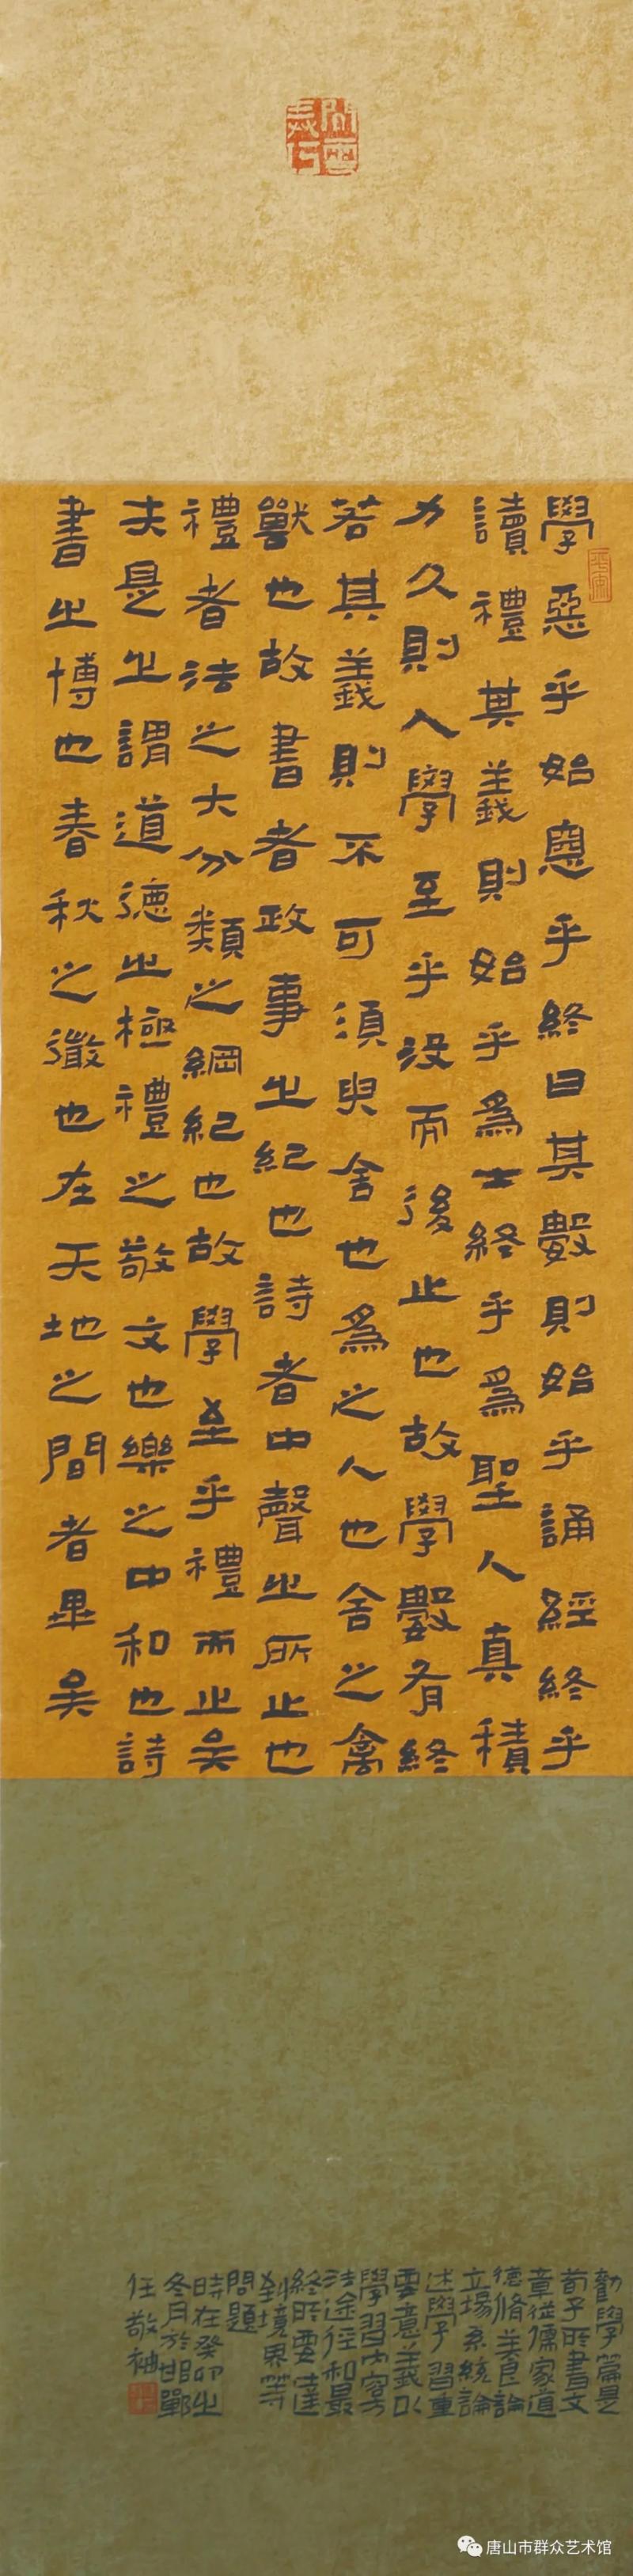 學惡乎始惡乎終曰其數則始乎誦經終乎
讀禮其義則始乎為士終乎為聖人真積
力久則入學至乎沒而後止也故學數有終
若其義則不可須臾舍也為之人也舍之禽
獸也故書者政事之紀也詩者中聲之所止也
禮者法之大分類之綱紀也故學至乎禮而止矣
夫是之謂道德之極禮之敬文也樂之中和也詩
書之博也春秋之微也在天地之間者畢矣
勸學篇是
荀子書文
章從儒家道
德脩
立場系統論
述學習重
要意義以
學習內容方
法途徑和最
終要達
到境界等
問題
時在癸卯之
冬月於邯鄲
任敬袖
唐山市群众艺术馆